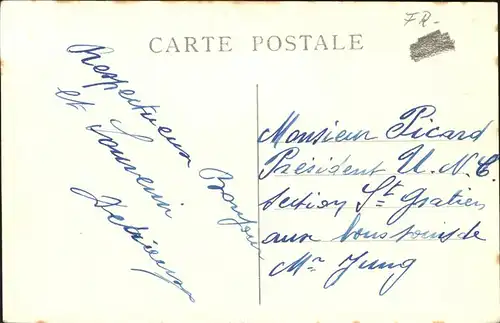 FR-
CARTE POSTALE
Respectueux Bonjour
et Souvenir
Monsieur Picard
Président U.N.C.
Section St Gratien
aux bons soins de
Mr Jung